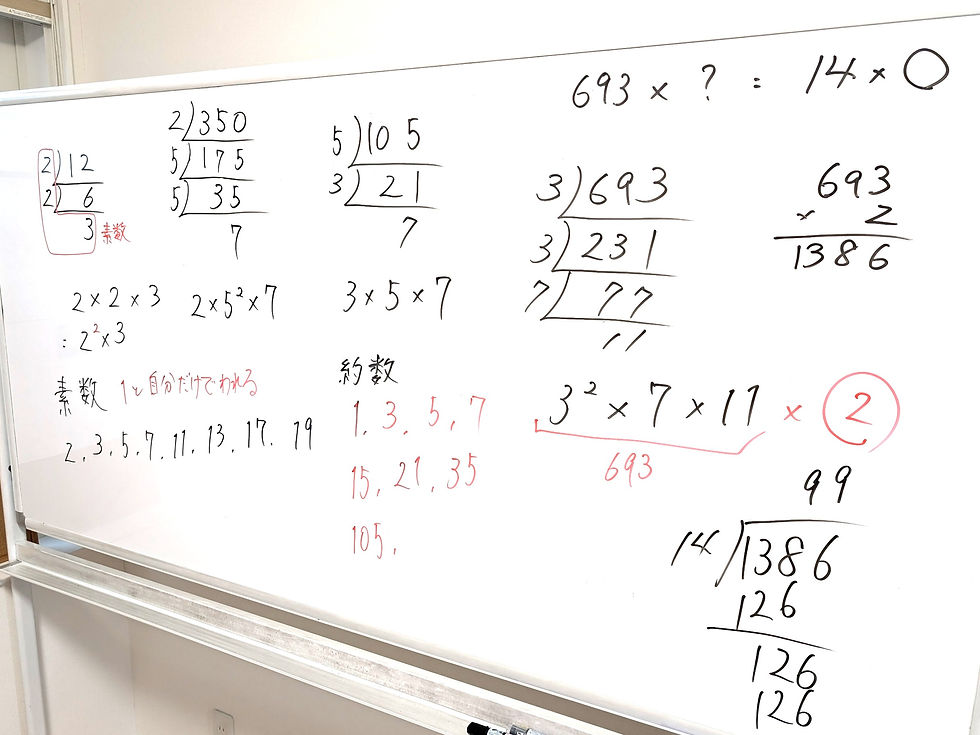 2)12
2)6
3 素数
2×2×3
=2²×3
素数 1と自分だけでわれる
2, 3, 5, 7, 11, 13, 17, 19
2)350
5)175
5)35
7
2×5²×7
5)105
3)21
7
3×5×7
約数
1, 3, 5, 7
15, 21, 35
105,
693 × ? = 14 × ○
3)693
3)231
7)77
11
693
× 2
1386
3² × 7 × 11 × 2
693
99
14)1386
126
126
126